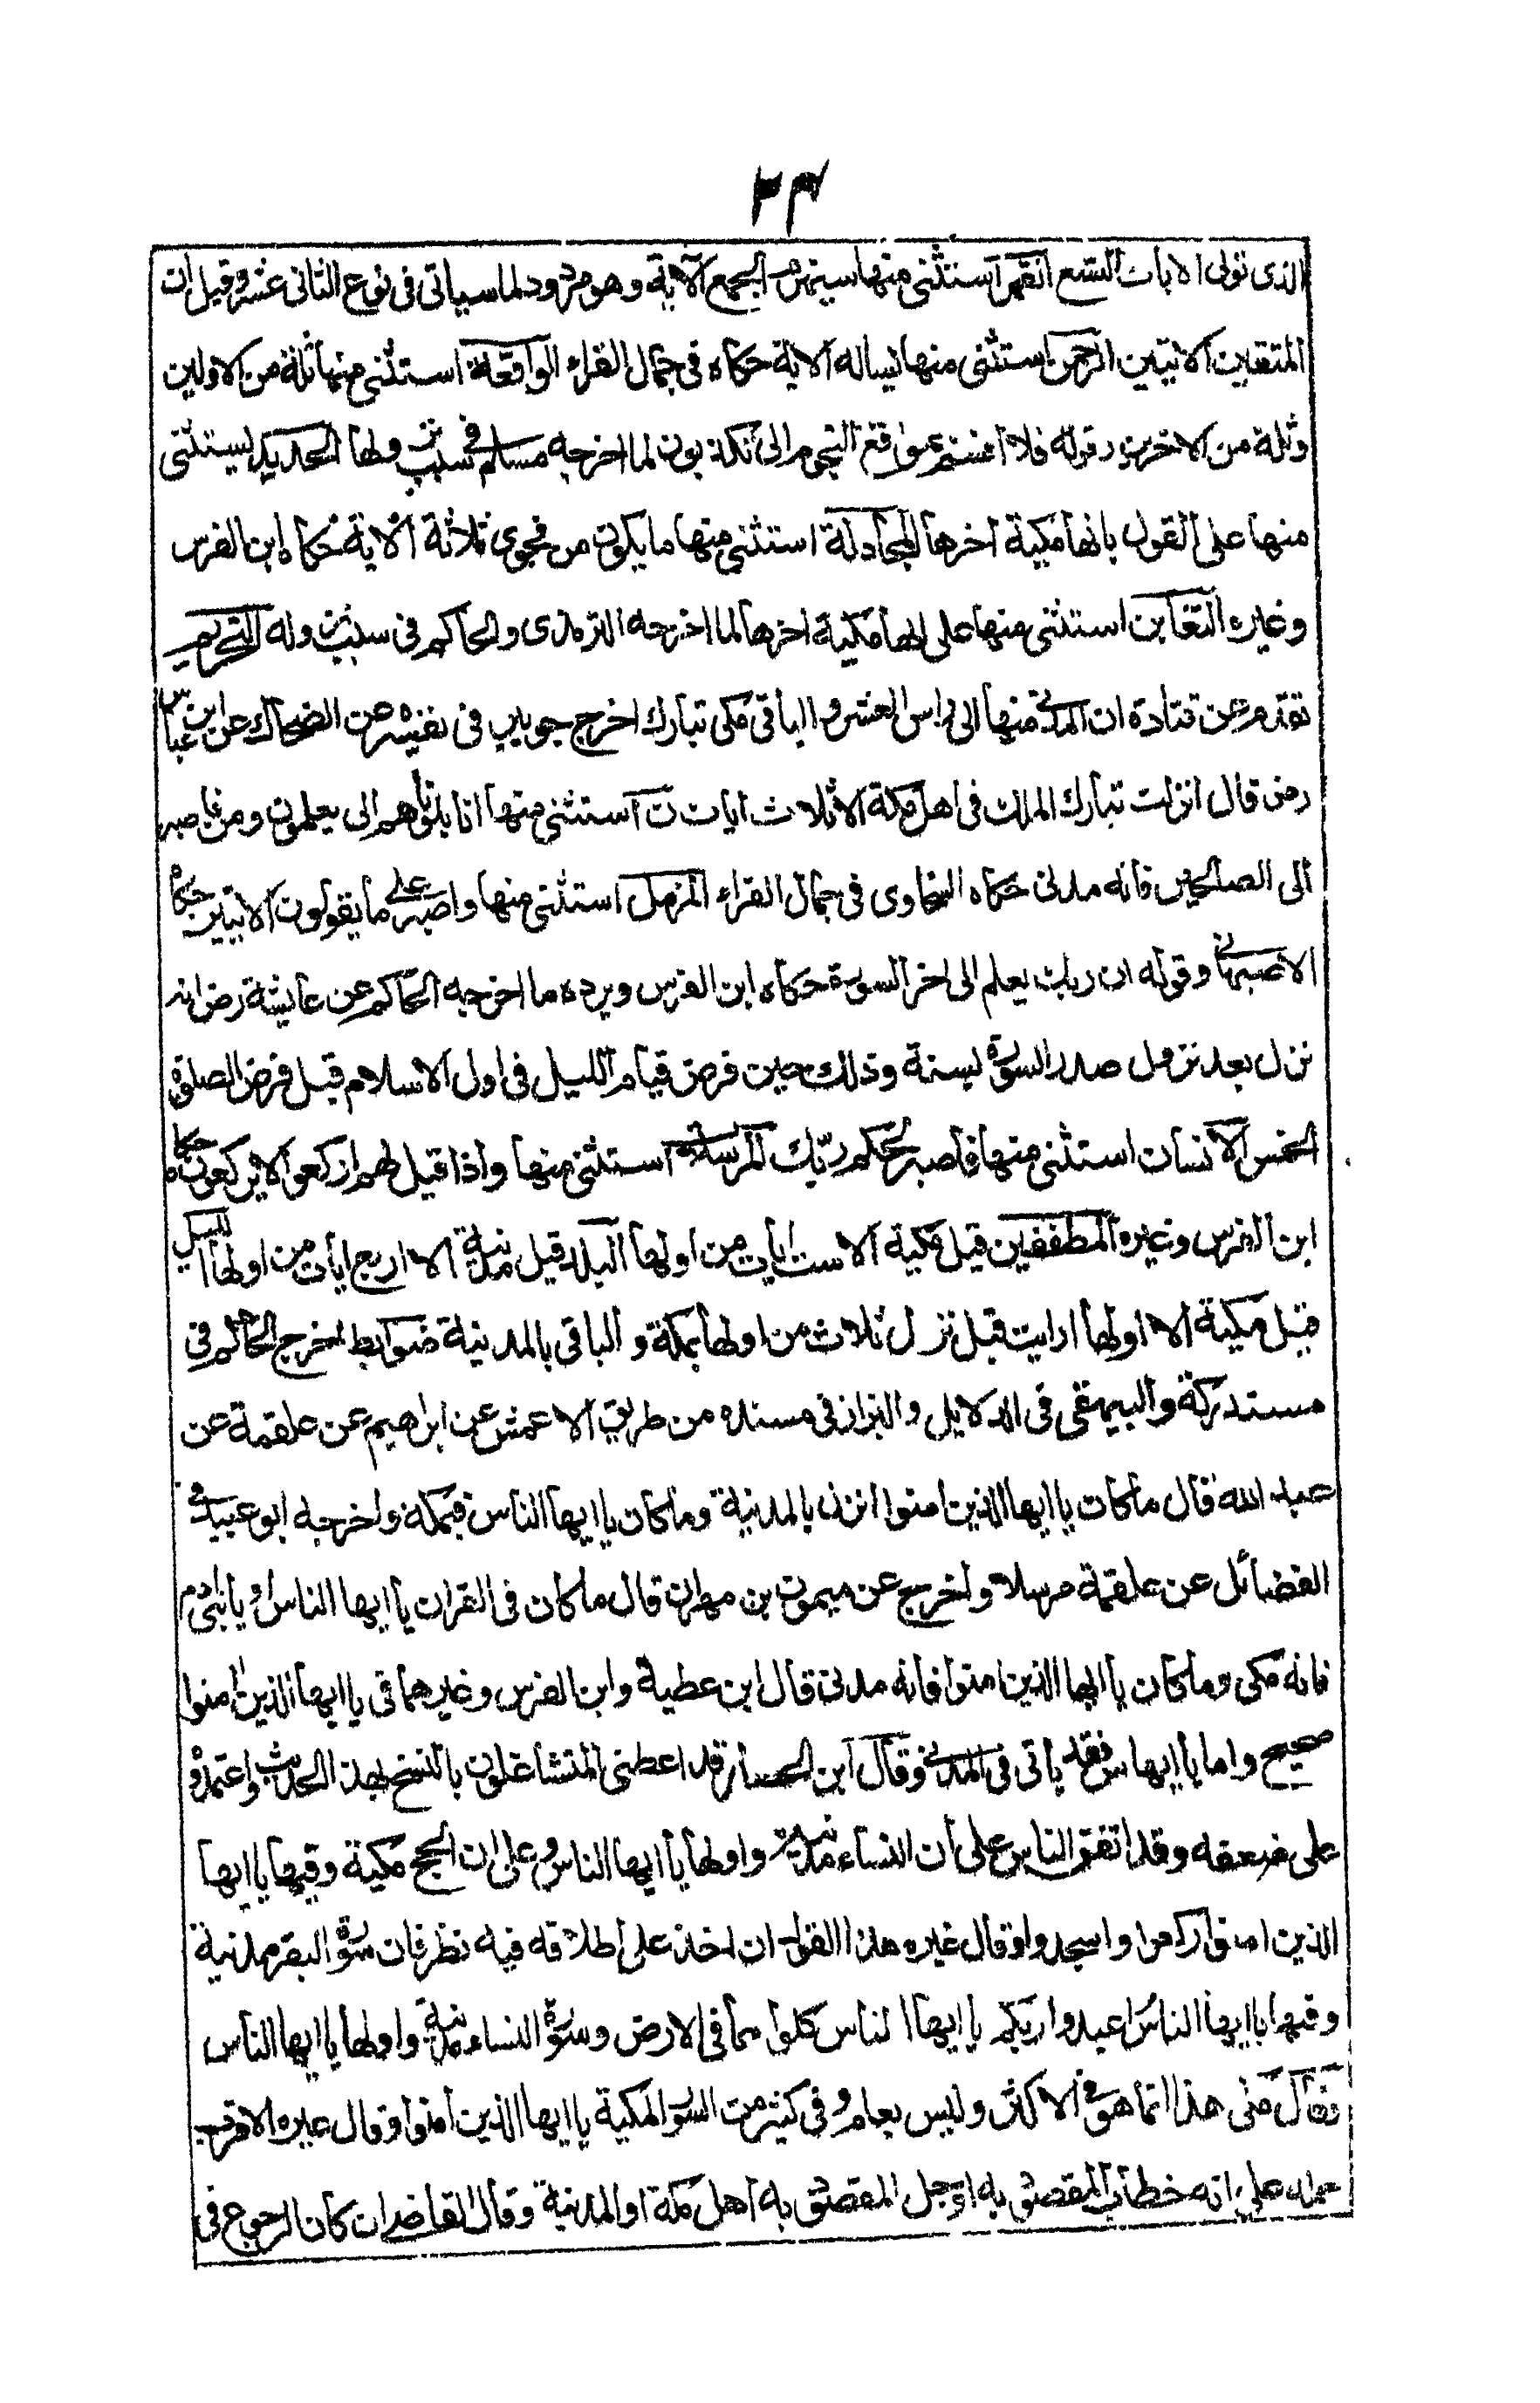 ٣٤
الذى تولى الايات التسع القمر استثنى منها سيهزم الجمع الاية وهو مردود لما سياتى فى نوع الثانى عشر وقيل ان
المتقين الايتين الرحمن استثنى منها يساله الاية حكاه فى جمال القراء الواقعة استثنى منها ثلة من الاولين
وثلة من الاخرين وقوله فلا اقسم بمواقع النجوم الى تكذبون لما اخرجه مسلم فى سبب نزولها الحديد يستثنى
منها على القول بانها مكية اخرها المجادلة استثنى منها ما يكون من نجوى ثلاثة الاية حكاه ابن الفرس
وغيره التغابن استثنى منها على انها مكية اخرها لما اخرجه الترمذى والحاكم فى سبب نزوله التحريم
تقدم عن قتادة ان المدنى منها الى راس العشر والباقى مكى تبارك اخرج جويبر فى تفسيره عن الضحاك عن ابن عباس
رض قال انزلت تبارك الملك فى اهل مكة الا ثلاث ايات ن استثنى منها انا بلوناهم الى يعلمون ومن فاصبر
الى الصالحين فانه مدنى حكاه السخاوى فى جمال القراء المزمل استثنى منها واصبر على ما يقولون الايتين حكاه
الاصبهانى وقوله ان ربك يعلم الى اخر السورة حكاه ابن الفرس ويرده ما اخرجه الحاكم عن عايشة رض انه
نزل بعد نزول صدر السورة بسنة وذلك حين فرض قيام الليل فى اول الاسلام قبل فرض الصلوة
الخمس الانسان استثنى منها فاصبر لحكم ربك المرسلات استثنى منها واذا قيل لهم اركعوا لا يركعون حكاه
ابن الفرس وغيره المطففين قيل مكية الا ست ايات من اولها البلد قيل مدنية الا اربع ايات من اولها الليل
قيل مكية الا اولها ارايت قيل نزل ثلاث من اولها بمكة والباقى بالمدينة ضوابط اخرج الحاكم فى
مستدركة والبيهقى فى الدلايل والبزاز فى مسنده من طريق الاعمش عن ابراهيم عن علقمة عن
عبد الله قال ما كان يا ايها الذين امنوا انزل بالمدينة وما كان يا ايها الناس فبمكة واخرجه ابو عبيد فى
الفضائل عن علقمة مرسلا واخرج عن ميمون بن مهران قال ما كان فى القران يا ايها الناس او يا بنى ادم
فانه مكى وما كان يا ايها الذين امنوا فانه مدنى قال ابن عطية وابن الفرس وغيرهما فى يا ايها الذين امنوا
صحيح واما يا ايها الناس فقد ياتى فى المدنى وقال ابن الحصار قد اعطنى المتشاغلون بالنسخ بهذ الحديث واعتمدوه
على ضعفه وقد اتفق الناس على ان النساء مدنية واولها يا ايها الناس وعلى ان الحج مكية وفيها يا ايها
الذين امنوا اركعوا واسجدوا وقال غيره هذا القول ان اخذ على اطلاقه فيه نظر فان سورة البقر مدنية
وفيها يا ايها الناس اعبدوا ربكم يا ايها الناس كلوا مما فى الارض وسورة النساء مدنية واولها يا ايها الناس
فقال مكى هذا انما هو فى الاكثر وليس بعام وفى كثير من السور المكية يا ايها الذين امنوا وقال غيره الاقرب
حمله على انه خطاب المقصود به او جل المقصود به اهل مكة او المدينة وقال القاضى ان كان الرجوع فى